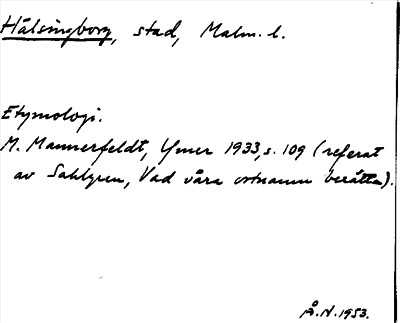 Hälsingborg, stad, Malm. l.
Etymologi.
M. Mannerfeldt, Ymer 1933, s. 109 (referat
av Sahlgren, Vad våra ortnamn berätta).
Å. N. 1953.